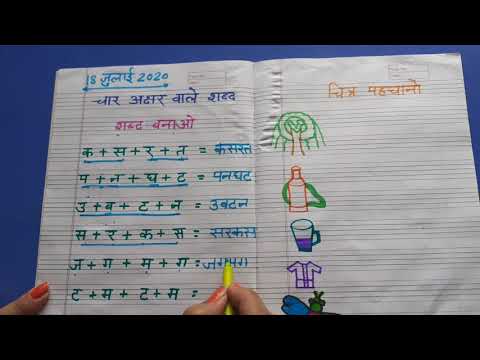 18 जुलाई 2020
चार अक्षर वाले शब्द
शब्द बनाओ
क + स + र + त = कसरत
प + न + घ + ट = पनघट
उ + ब + ट + न = उबटन
स + र + क + स = सरकस
ज + ग + म + ग = जगमग
ट + म + ट + म =
चित्र पहचानो